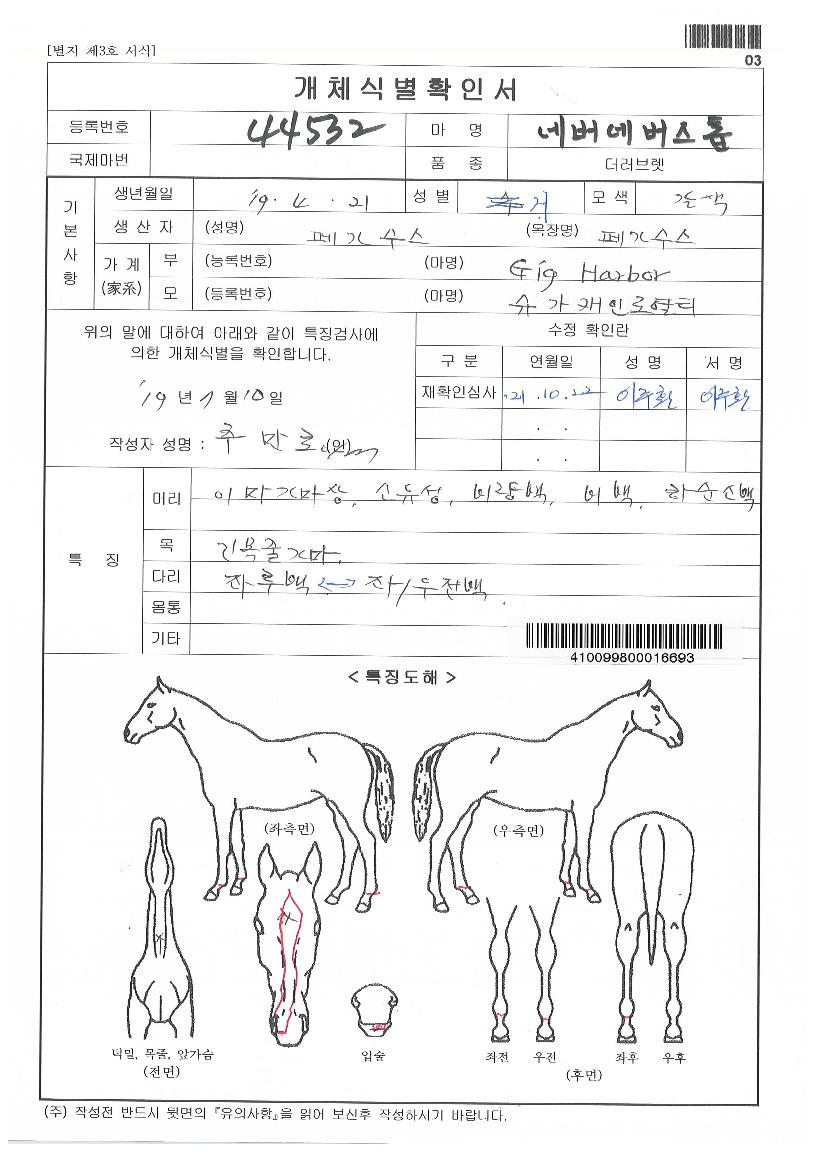 [별지 제3호 서식]
03
개체식별확인서
등록번호 44532 마 명 네버에버스톱
국제마번 품 종 더러브렛
기본사항
생년월일 '19. 4 . 21 성별 수 거 모색 갈색
생산자 (성명) 페가수스 (목장명) 페가수스
가계 (家系) 부 (등록번호) (마명) Gig Harbor
모 (등록번호) (마명) 슈가캐인로얄티
위의 말에 대하여 아래와 같이 특징검사에
의한 개체식별을 확인합니다.
'19 년 7 월 10 일
작성자 성명 : 추만호 (인)
수정 확인란
구분 연월일 성명 서명
재확인심사 '21 .10. 22 이주환 이주환
. .
. .
특 징
머리 이마가마상, 소유성, 비량백, 비백, 하순소백
목 기복줄가마.
다리 좌후백 <-> 좌/우전백.
몸통
기타
410099800016693
< 특징도해 >
(좌측면) (우측면)
턱밑, 목줄, 앞가슴
(전면)
입술
좌전 우전 좌후 우후
(후면)
(주) 작성전 반드시 뒷면의 『유의사항』을 읽어 보신후 작성하시기 바랍니다.